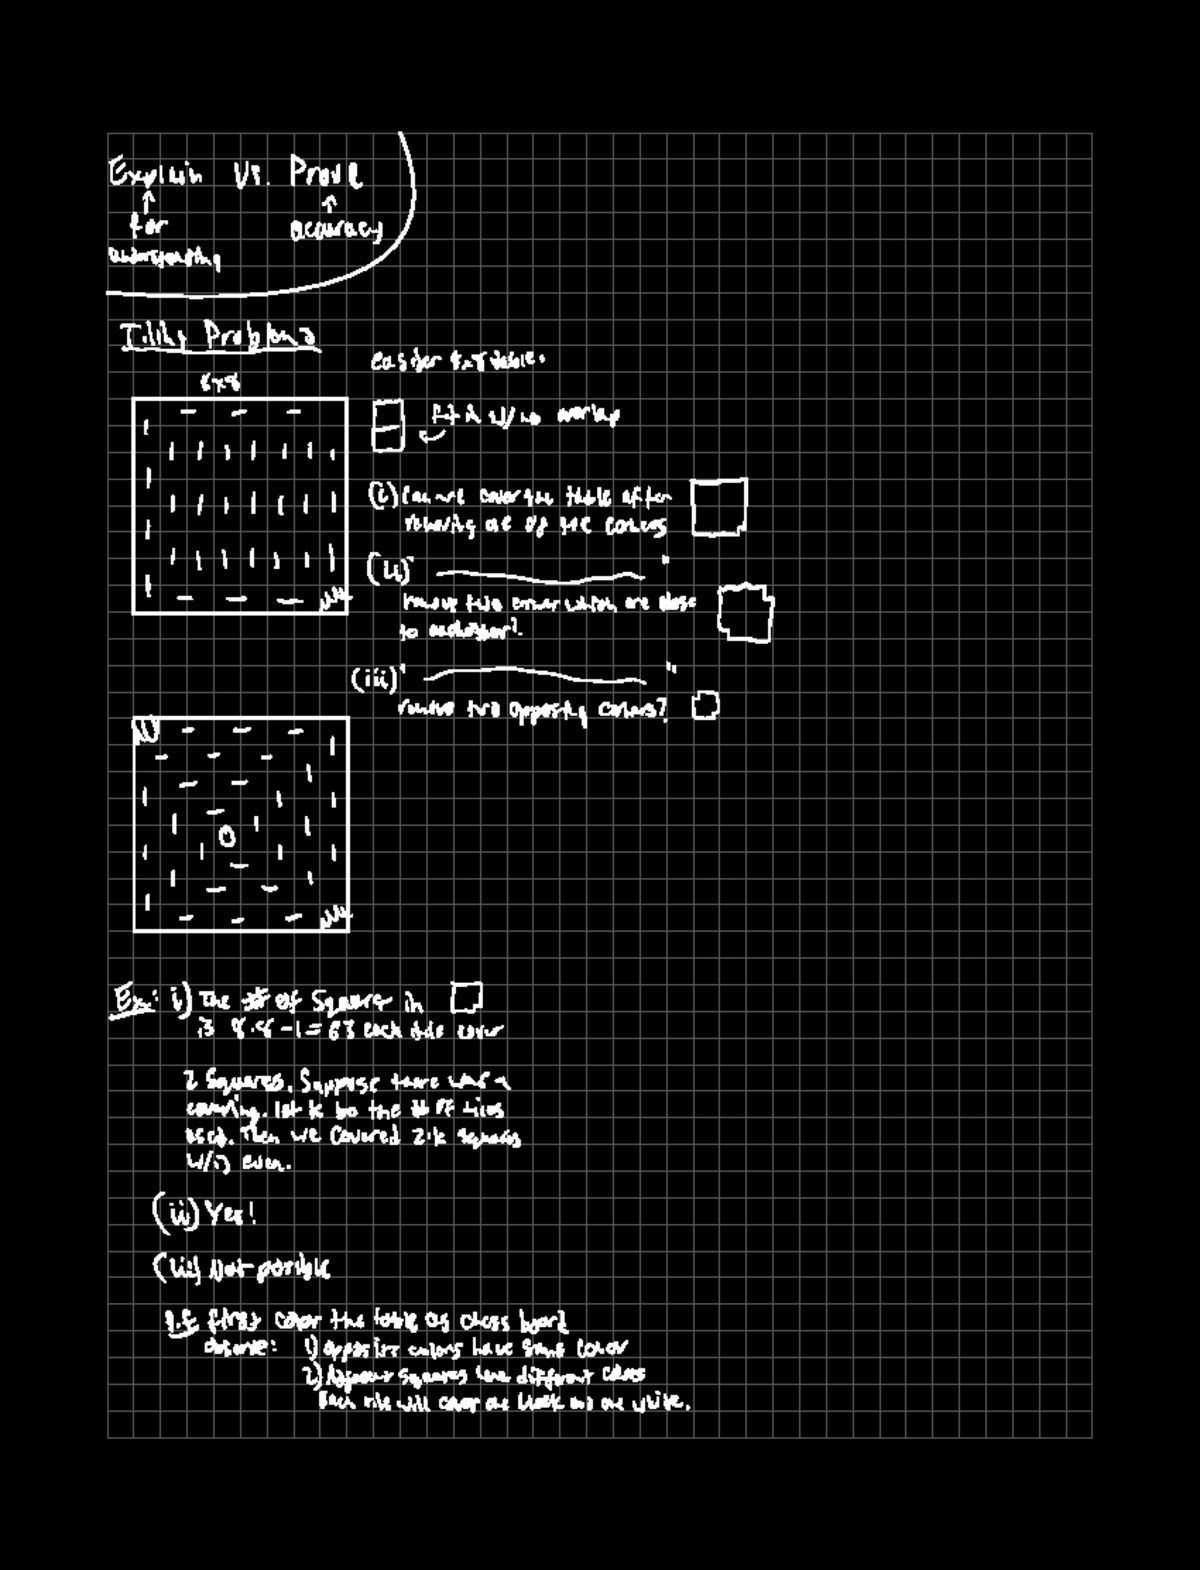 Explain Vs. Prove
for
understanding
accuracy
Tiling Problems
8x8
consider 8x8 table.
fit w/ no overlap
(i) Can we cover the table after
removing one of the corners
(ii) " "
remove two corner which are close
to eachother?
(iii) " "
remove two opposing corners?
Ex: i) The # of Square in
is 8·8-1=63 each tile cover
2 Squares. Suppose there was a
covering. let k be the # of tiles
used. Then we Covered 2·k squares
w/ even.
(ii) Yes!
(iii) Not posible
first color the table as chess board
observe: 1) opposite colors have same color
2) Adjacent squares have different colors
Each tile will cover one black and one white.